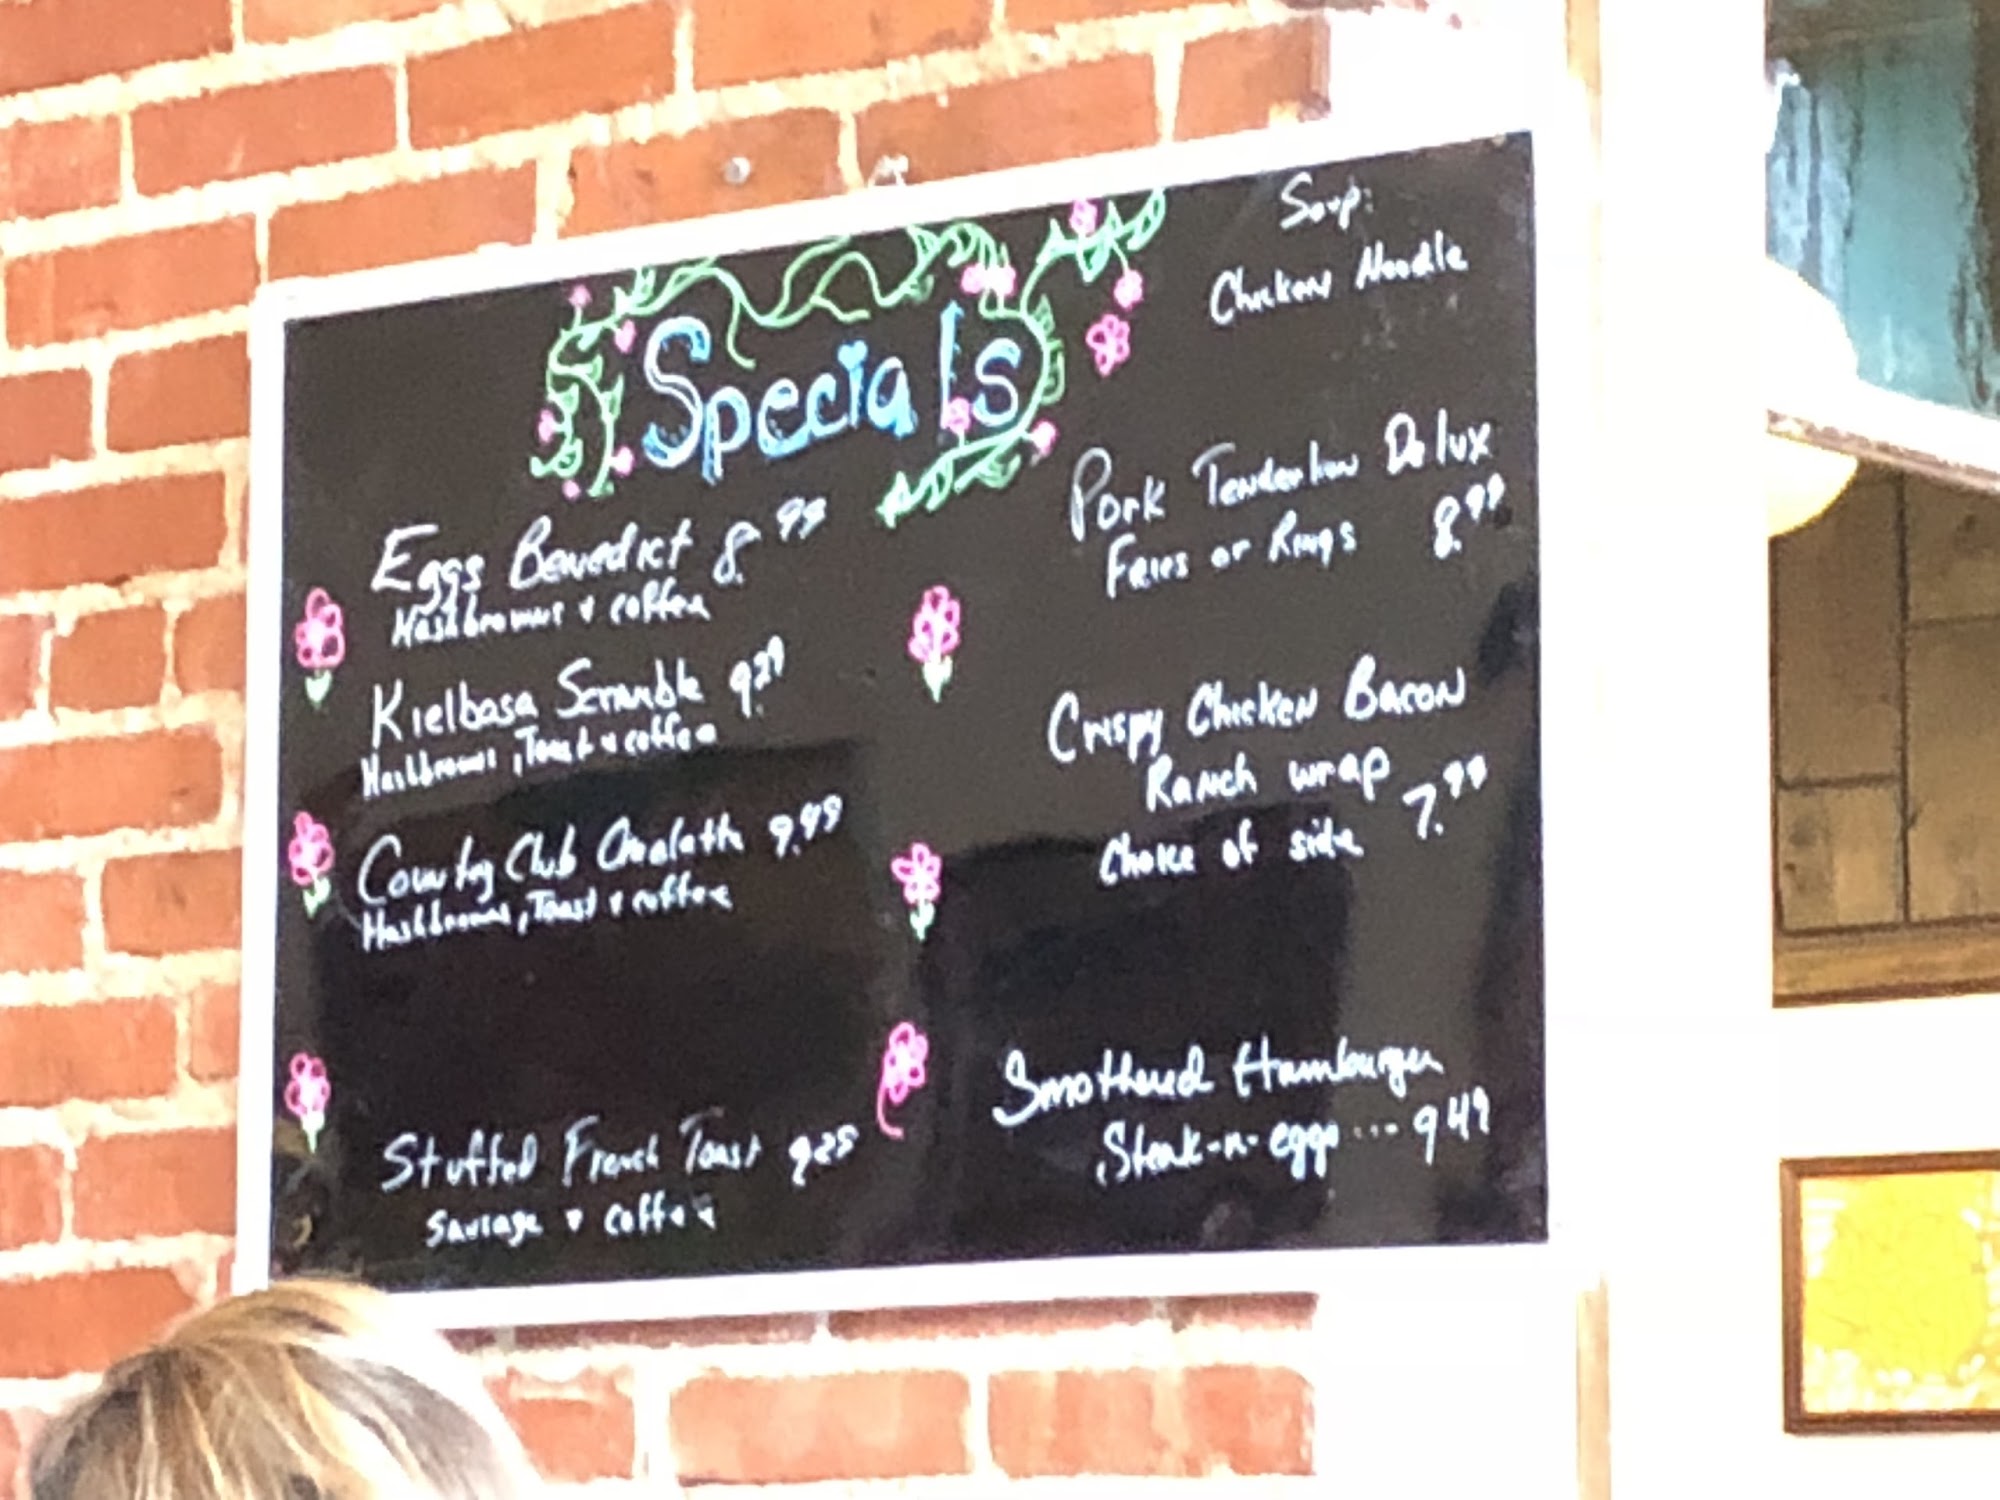 Specials
Eggs Benedict 8.99
Hashbrowns & coffee
Kielbasa Scramble 9.29
Hashbrowns, Toast & coffee
Country Club Omelette 9.49
Hashbrowns, Toast & coffee
Stuffed French Toast 9.25
Sausage & coffee
Soup:
Chicken Noodle
Pork Tenderloin Delux
Fries or Rings 8.99
Crispy Chicken Bacon
Ranch wrap 7.99
Choice of side
Smothered Hamburger
Steak-n-eggs... 9 49